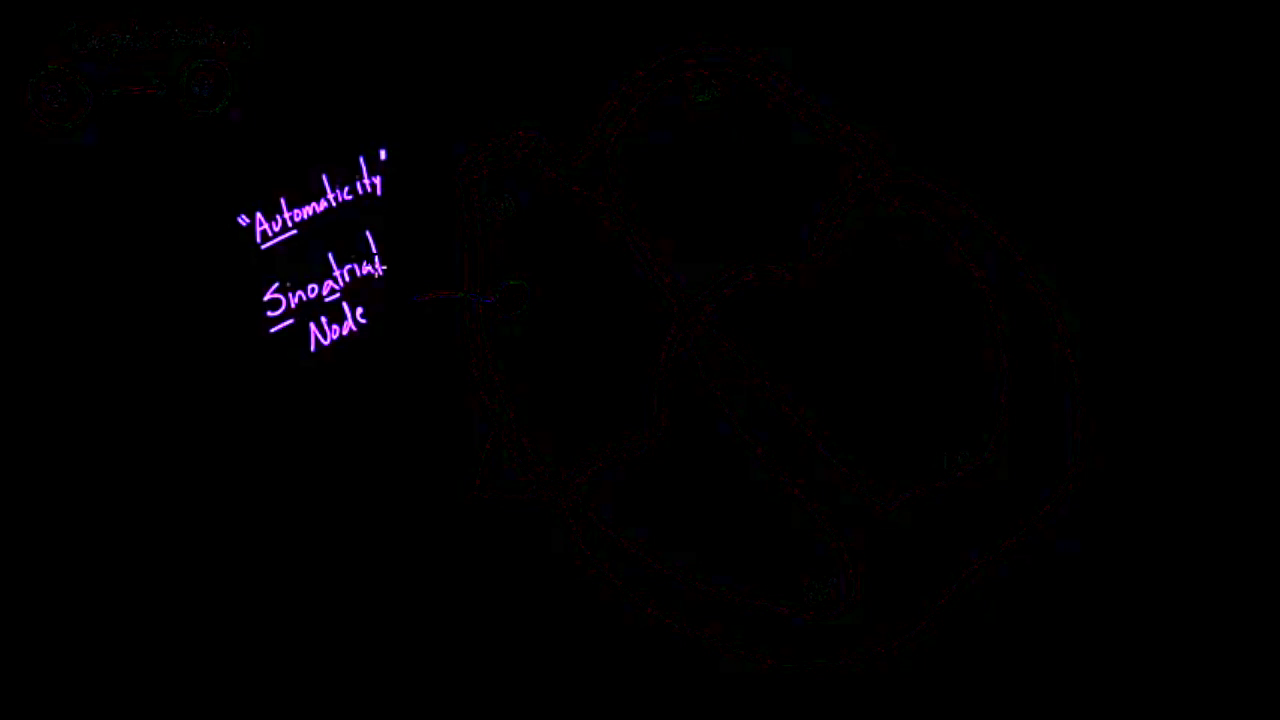 "Automaticity"
Sinoatrial
Node